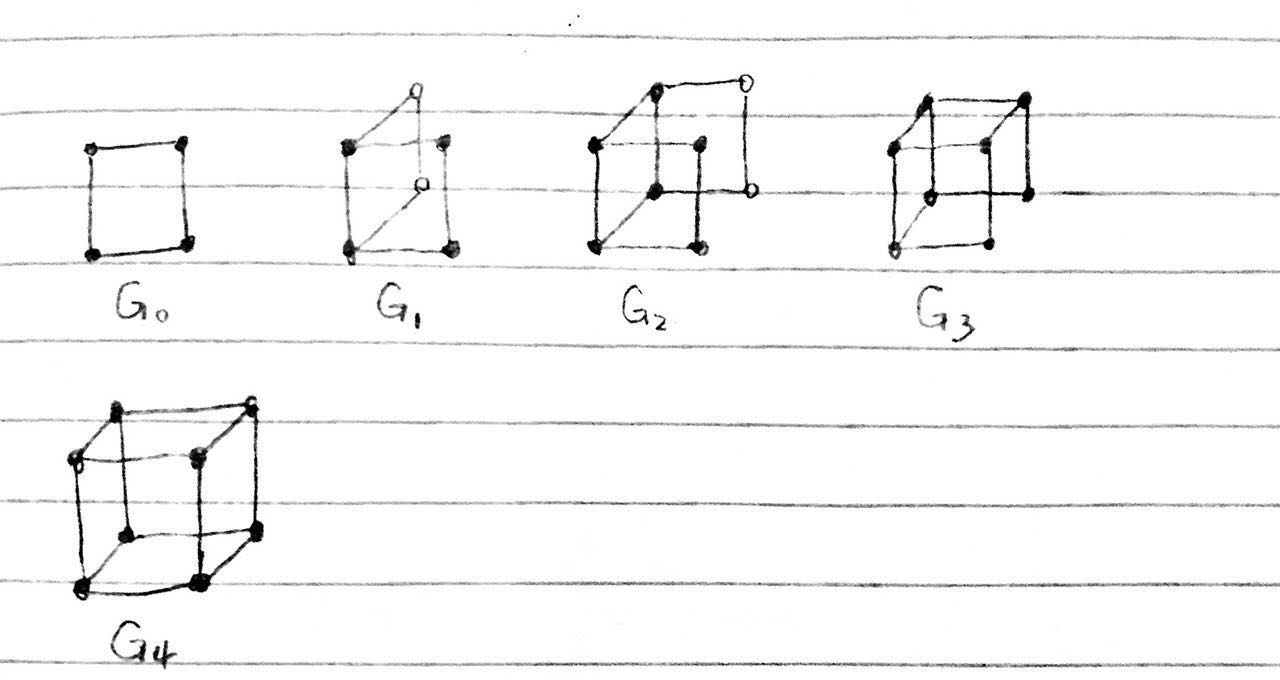 G₀ G₁ G₂ G₃
G₄